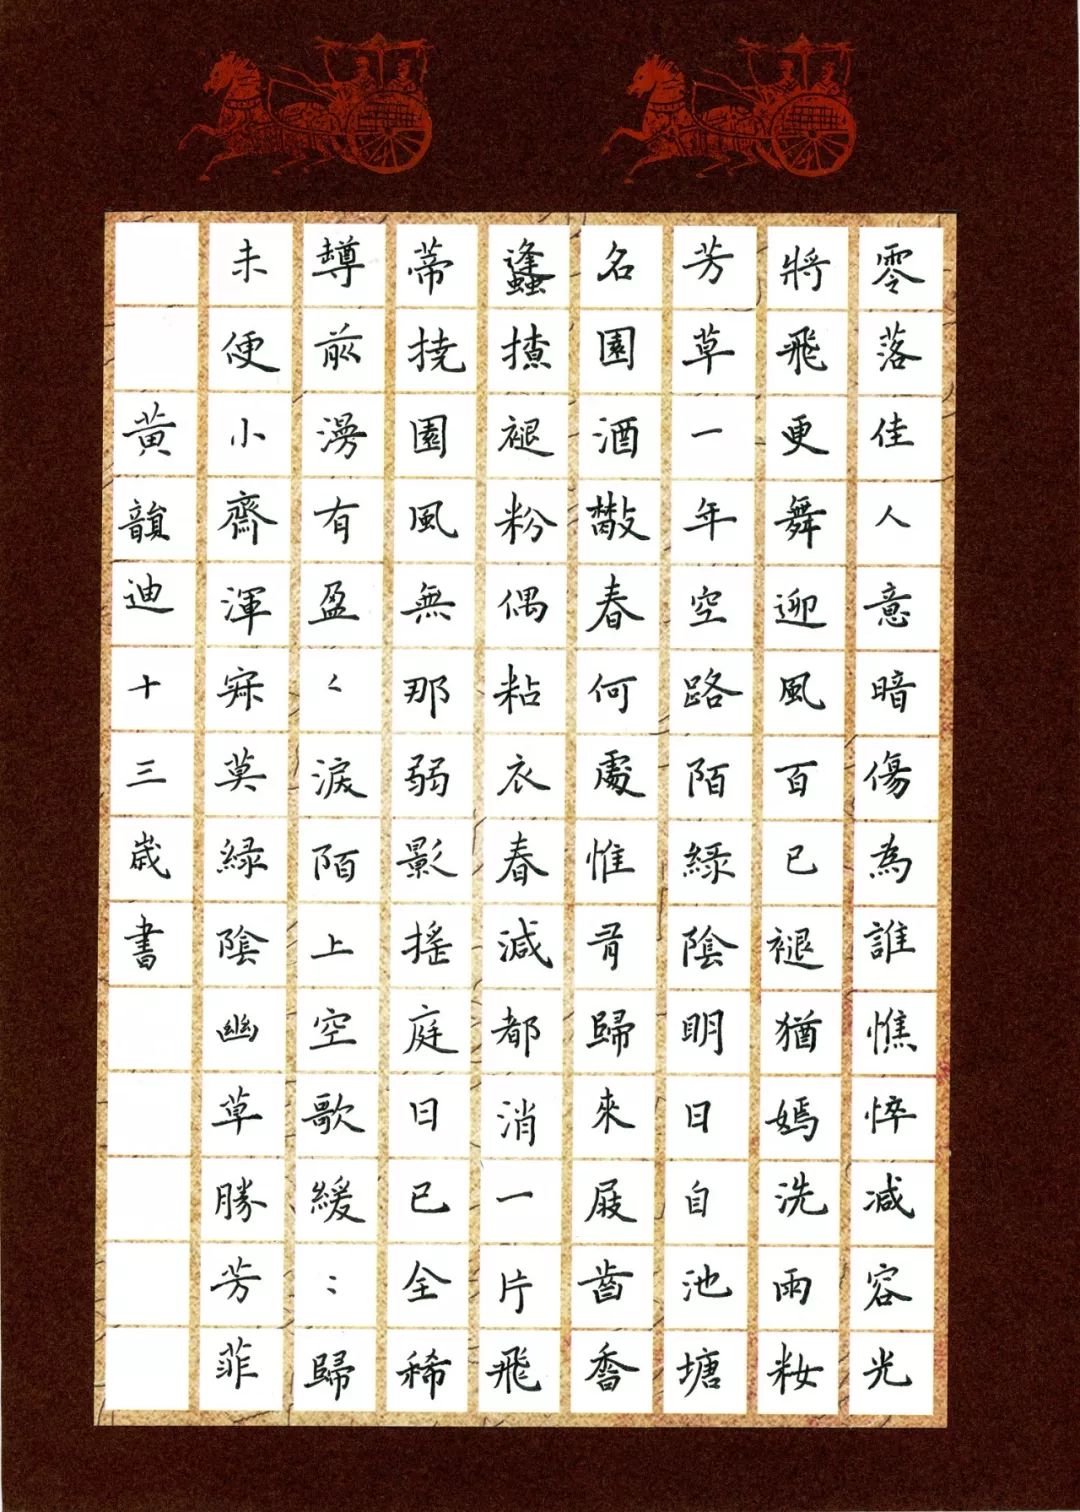 零落佳人意暗傷為誰憔悴減容光
將飛更舞迎風百已褪猶嫣洗雨妝
芳草一年空路陌綠陰明日自池塘
名園酒散春何處惟有歸來屐齒香
蠭撩褪粉偶粘衣春減都消一片飛
蒂撓園風無那弱影搖庭日已全稀
罇前漫有盈〻淚陌上空歌緩〻歸
未便小齋渾寂莫綠陰幽草勝芳菲
黃韻迪十三歲書